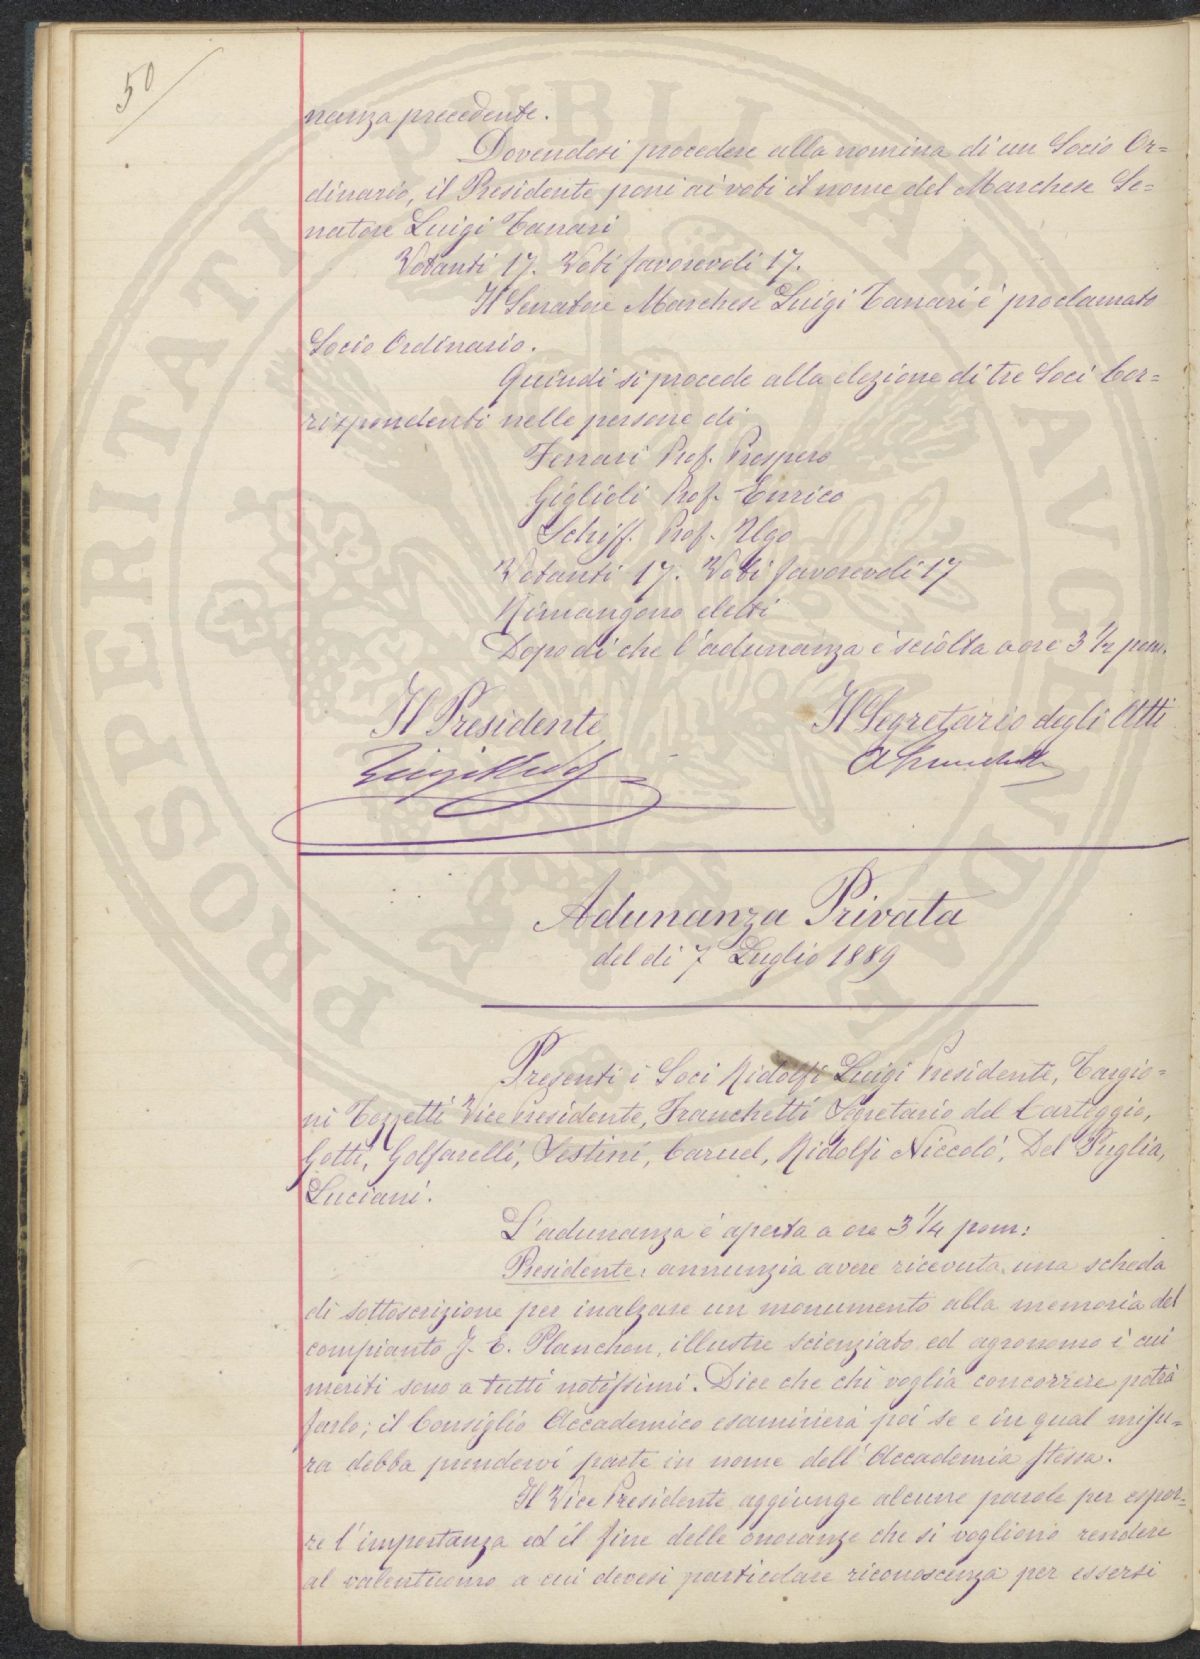 50
nanza precedente.
Dovendosi procedere alla nomina di un Socio Or=
dinario, il Presidente pone ai voti il nome del Marchese Se=
natore Luigi Tanari
Votanti 17. Voti favorevoli 17.
Il Senatore Marchese Luigi Tanari è proclamato
Socio Ordinario.
Quindi si procede alla elezione di tre Soci Cor=
rispondenti nelle persone di
Ferrari Prof. Prospero
Giglioli Prof. Enrico
Schiff. Prof. Ugo
Votanti 17. Voti favorevoli 17
Rimangono eletti
Dopo di che l'adunanza è sciolta a ore 3 1/2 pom.
Il Presidente
Il Segretario degli Atti
Luigi Ridolfi
Adunanza Privata
del dì 7 Luglio 1889
Presenti i Soci Ridolfi Luigi Presidente, Targio=
ni Tozzetti Vice Presidente, Franchetti Segretario del Carteggio,
Gotti, Golfarelli, Sestini, Caruel, Ridolfi Niccolò, Del Puglia,
Luciani.
L'adunanza è aperta a ore 3 1/4 pom:
Presidente: annunzia avere ricevuta una scheda
di sottoscrizione per inalzare un monumento alla memoria del
compianto J. E. Planchon, illustre scienziato ed agronomo i cui
meriti sono a tutti notissimi. Dice che chi voglia concorrere potrà
farlo; il Consiglio Accademico esaminerà poi se e in qual misu=
ra debba prendervi parte in nome dell'Accademia stessa.
Il Vice Presidente aggiunge alcune parole per espor=
re l'importanza ed il fine delle onoranze che si vogliono rendere
al valentuomo a cui devesi particolare riconoscenza per essersi
PROSPERITATI PUBLICAE AUGENDAE